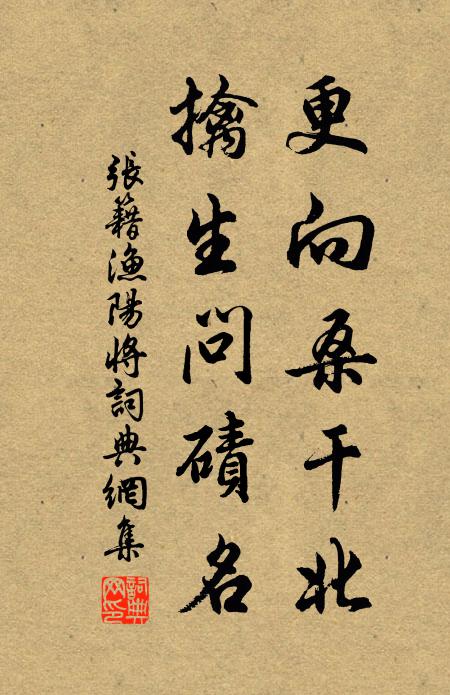 更向桑干北
擒生問磧名
張籍漁陽將詞典網集
詞典
网印